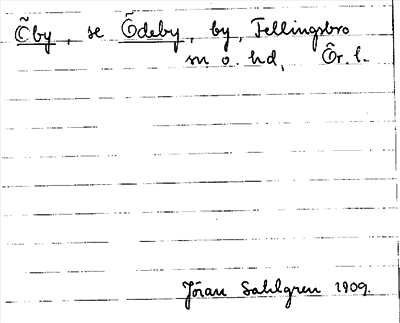 Õby, se Ödeby, by, Fellingsbro
sn o. hd, Ör. l.
Jöran Sahlgren 1909.